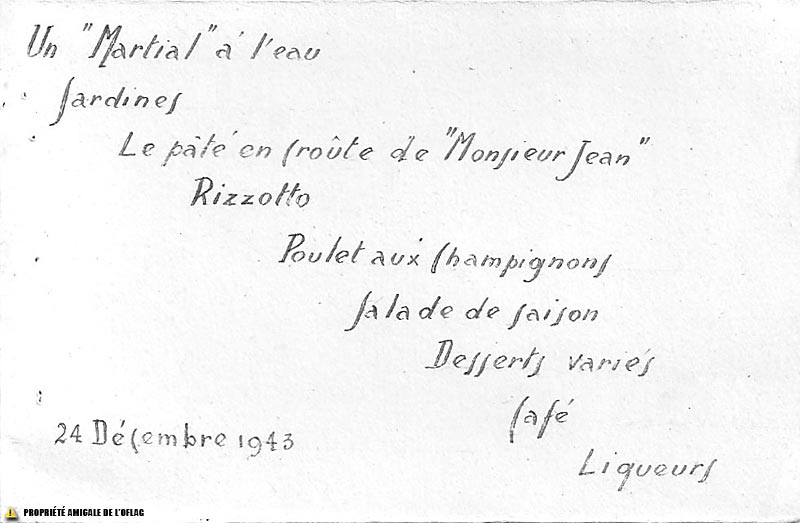 Un "Martial" à l'eau
Sardines
Le pâté en croûte de "Monsieur Jean"
Rizzotto
Poulet aux Champignons
Salade de saison
Desserts variés
Café
24 Déçembre 1943
Liqueurs
PROPRIÉTÉ AMIGALE DE L'OFLAG